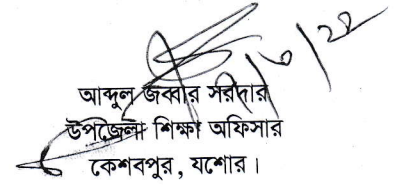 আব্দুল জব্বার সরদার
উপজেলা শিক্ষা অফিসার
কেশবপুর, যশোর।